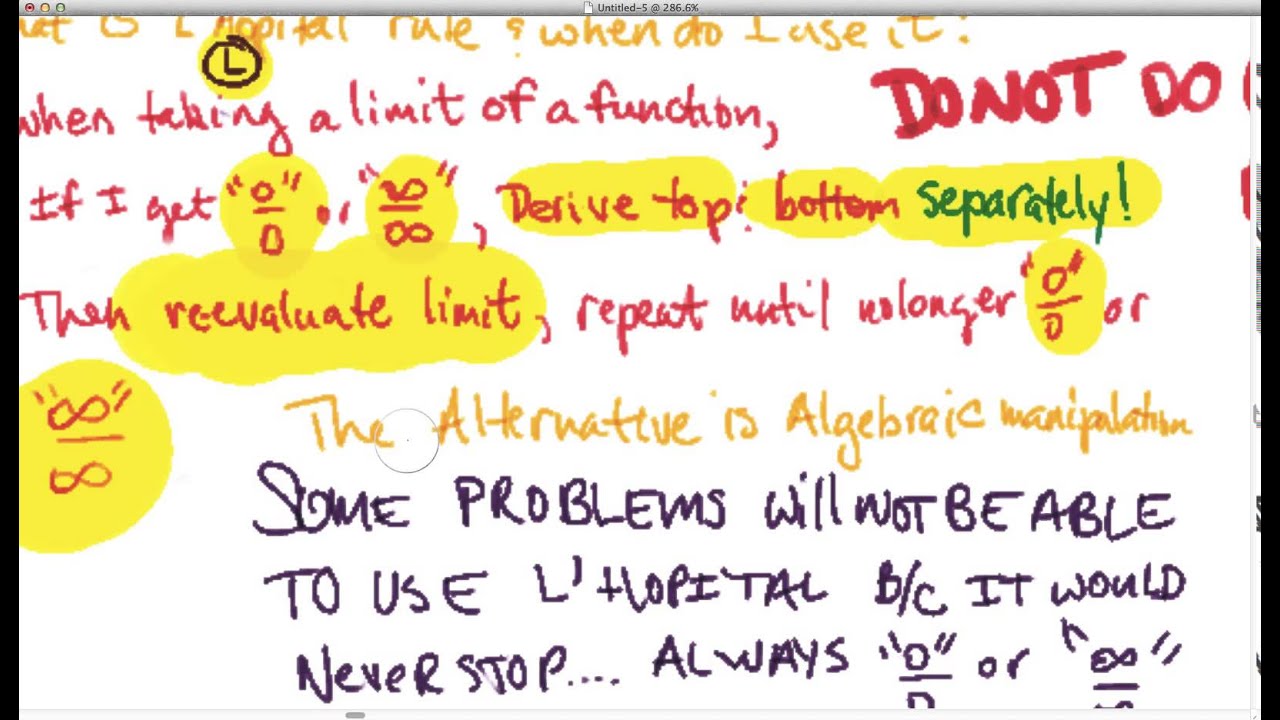 Untitled-5 @ 286.6%
at is L'Hopital rule & when do I use it?
L
when taking a limit of a function, DO NOT DO
If I get "0/0" or "∞/∞", Derive top & bottom separately!
Then re-evaluate limit, repeat until no longer "0/0" or
"∞/∞" The Alternative is Algebraic manipulation
SOME PROBLEMS will NOT BE ABLE
TO USE L'HOPITAL B/C IT WOULD
NEVER STOP.... ALWAYS "0/0" or "∞/∞"